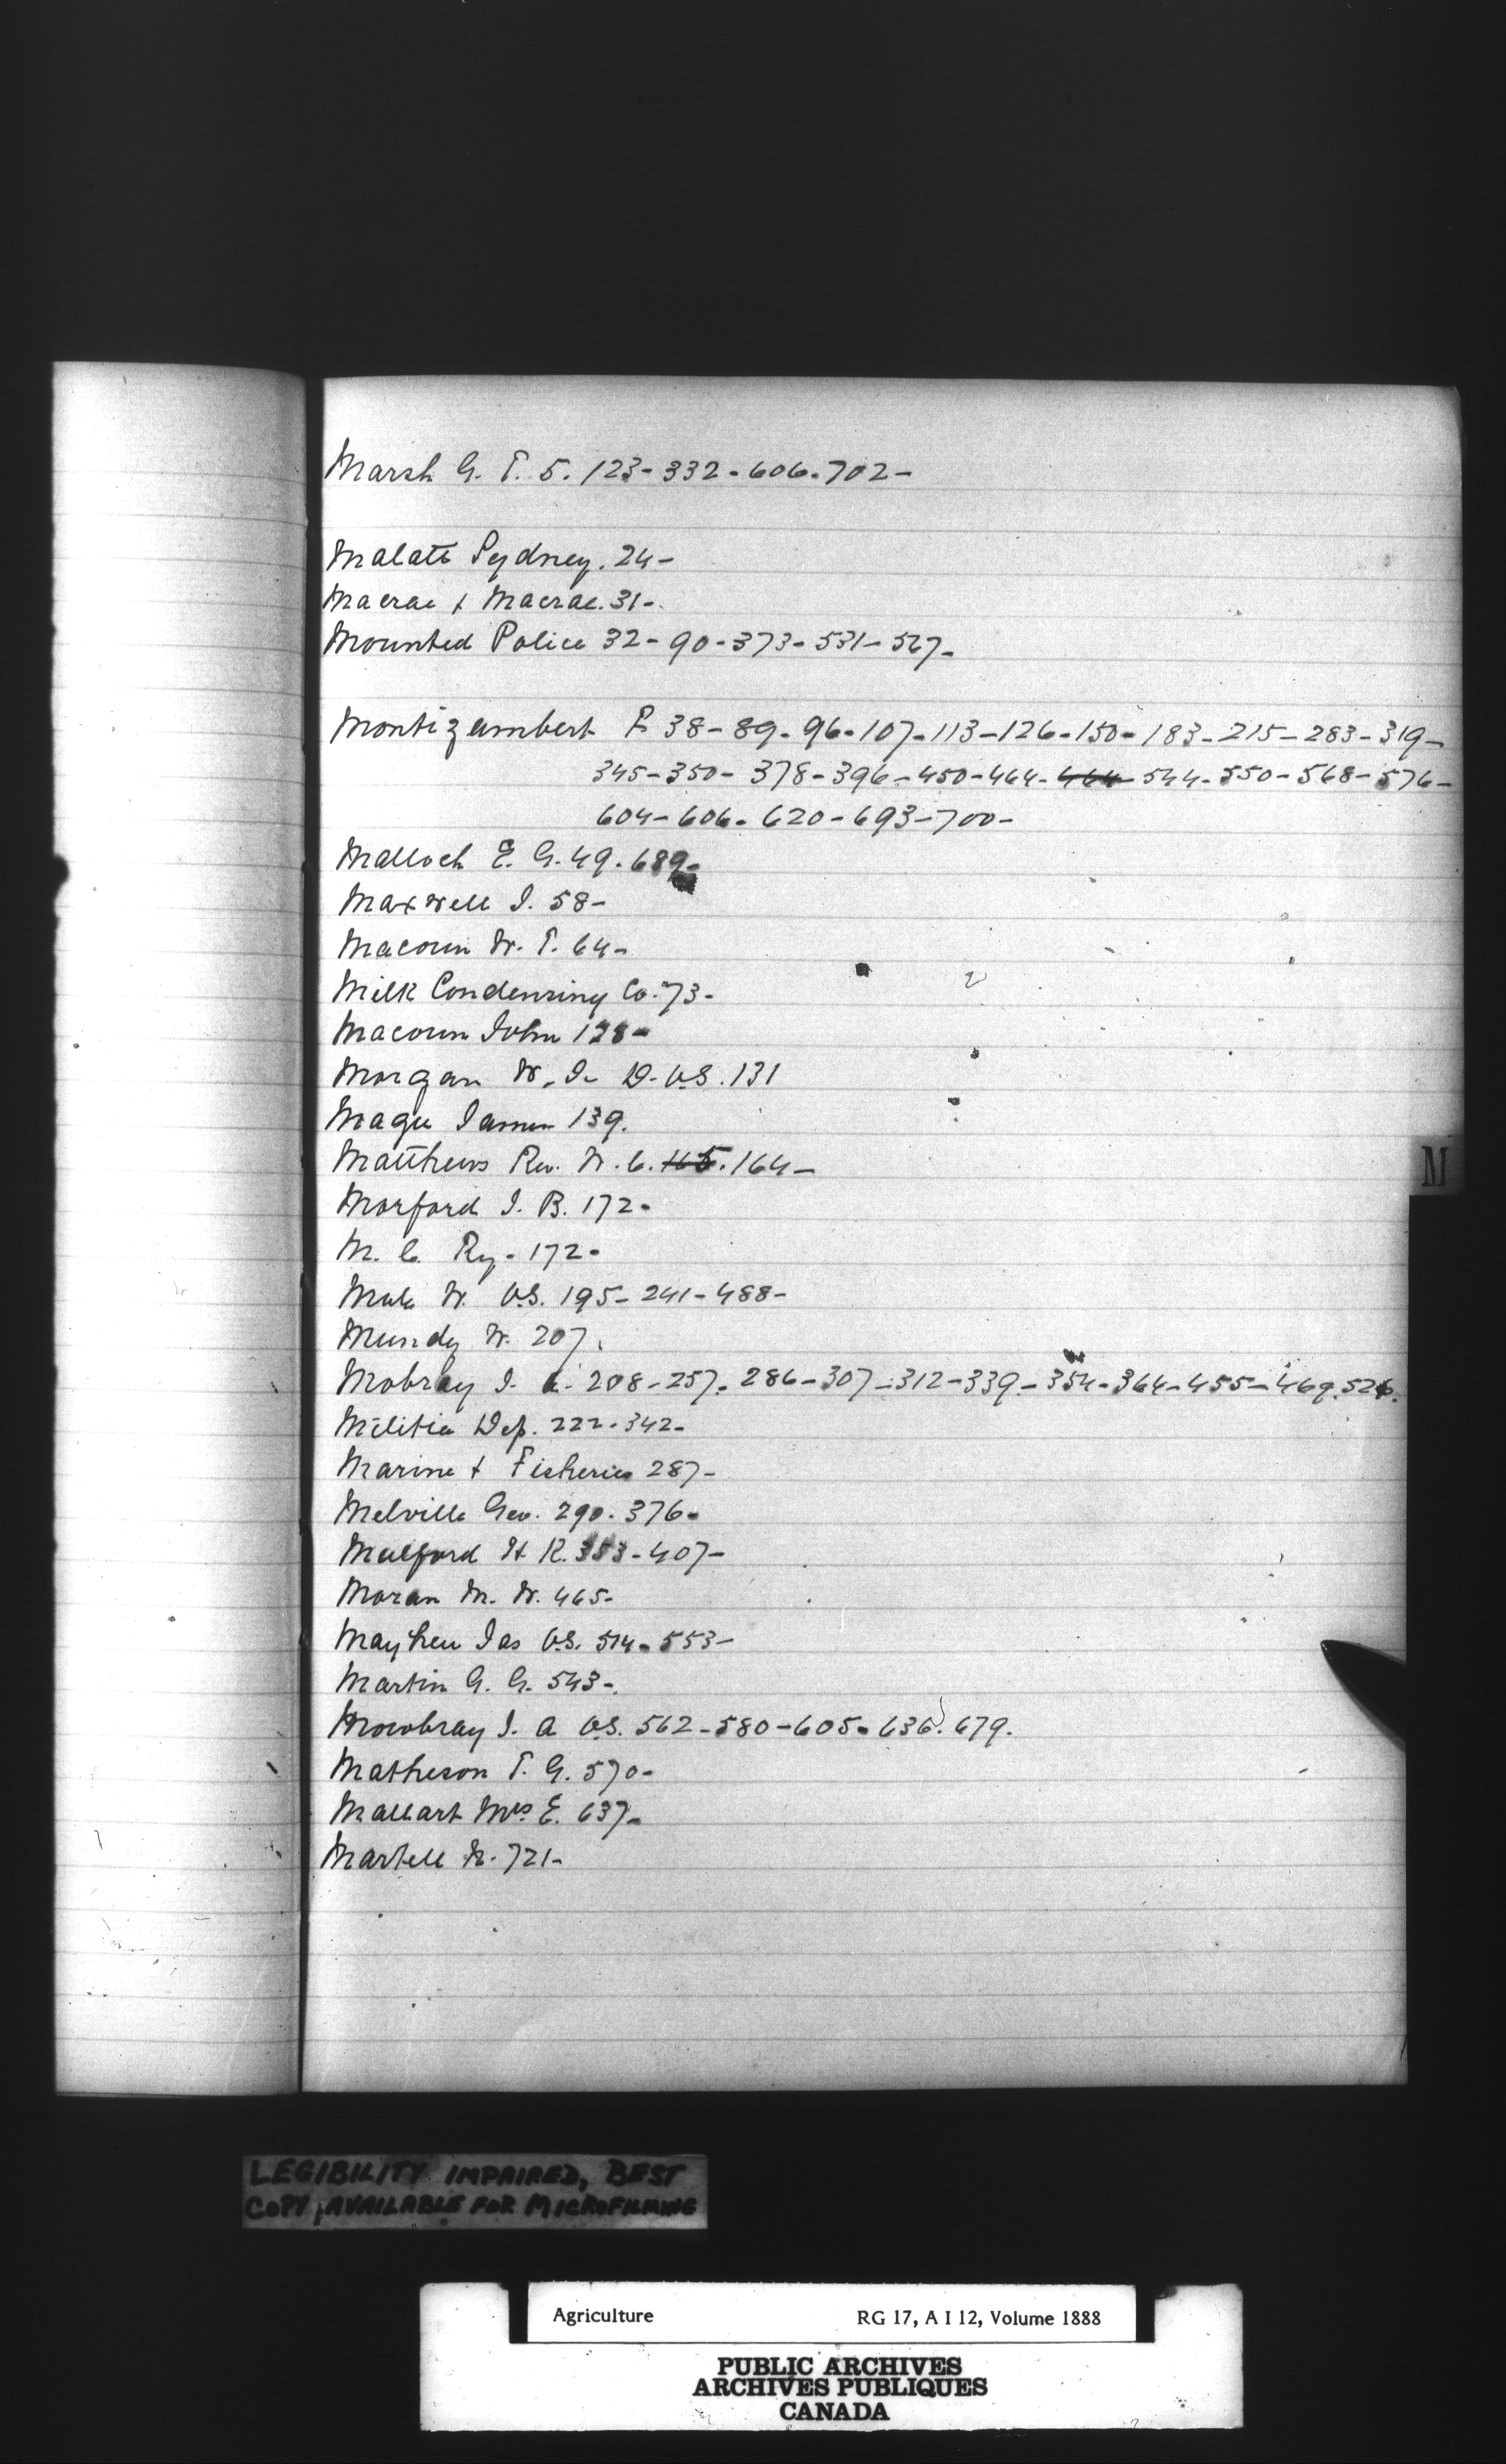 Marsh G. T. 5. 123-332-606.702-
Malatt Sydney. 24-
Macrae & Macrae. 31-
Mounted Police 32-90-373-531-567-
Montizambert F 38-89-96-107-113-126-150-183-215-283-319-
345-350-378-396-450-464-464-544-550-568-576-
604-606-620-693-700-
Malloch E. G. 49. 689-
Maxwell J. 58-
Macoun W. T. 64-
Milk Condensing Co. 73-
Macoun John 128-
Morgan W. J. D.V.S. 131
Magee James 139.
Matthews Rev. W. C. 165. 164-
Morford J. B. 172-
M. C. Ry - 172-
Mole W. V.S. 195-241-488-
Mundy W. 207.
Mobray J. A. 208-257-286-307-312-339-354-364-455-469.526.
Militia Dep. 222-342-
Marine & Fisheries 287-
Melville Geo. 290. 376-
Mulford H K. 353-407-
Moran M. W. 465-
Mayhew Jas V.S. 514-553-
Martin G. G. 543-
Mowbray J. A V.S. 562-580-605-636.679.
Matheson T. G. 570-
Mallart Mrs E. 637-
Martell N. 721-
M
LEGIBILITY IMPAIRED, BEST
COPY AVAILABLE FOR MICROFILMING
Agriculture RG 17, A I 12, Volume 1888
PUBLIC ARCHIVES
ARCHIVES PUBLIQUES
CANADA